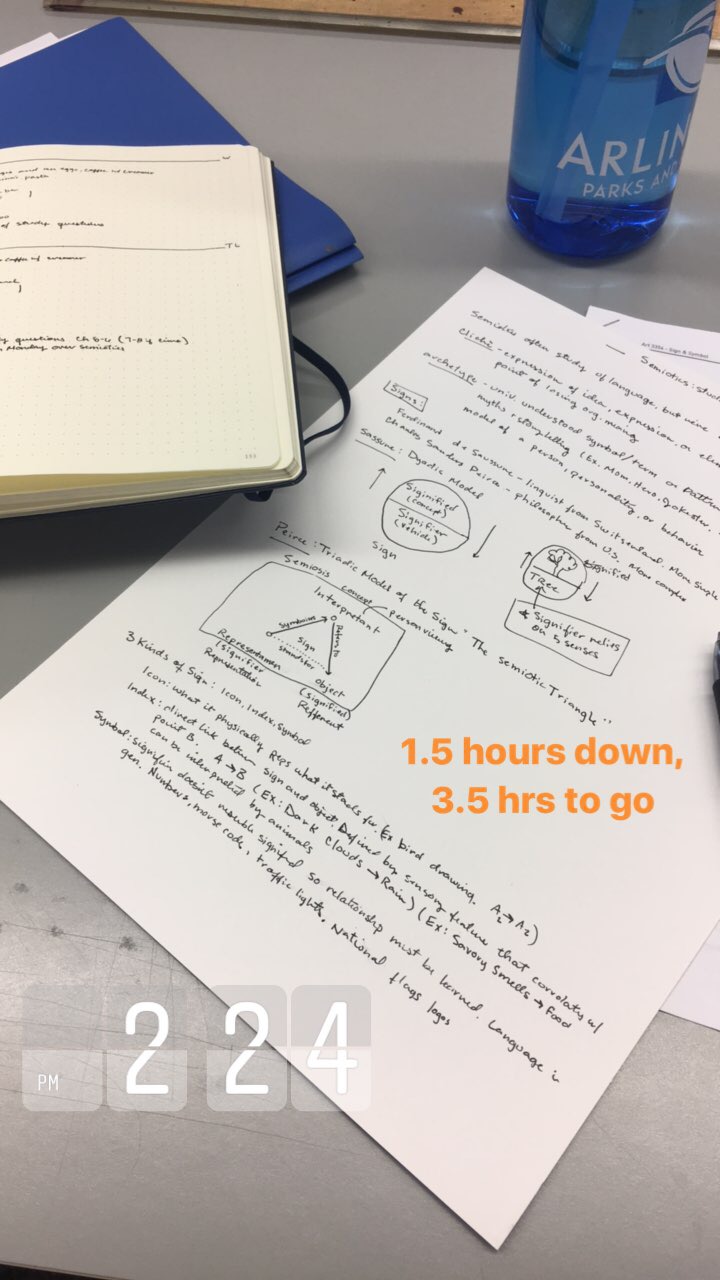 ARLIN
PARKS AND
W
and an eggs, coffee w/ creamer
pasta
of study questions
Th
coffee w/ creamer
questions Ch 5-6 (7-8 if time)
Monday over semiotics
153
Art 3354 - Sign & Symbol
Semiotics: stud
Semiotics often study of language, but were
Cliché - expression of idea, expression, or ele
point of losing org. meaning
archetype - univ. understood symbol/term or pattern
myths + storytelling (Ex. Mom, Hero, Jokester,
model of a person, personality, or behavior
Signs:
Ferdinand de Saussure - linguist from Switserland. More simple
Charles Sanders Peirce - philosopher from U.S. More complex
Sassure: Dyadic Model
Siginified
(concept)
Signifier
(vehicle)
Sign
Signified
Tree
* Signifier relies
on 5 senses
Peirce: Triadic Model of the Sign "The semiotic Triangle"
Semiosis
concept
Interpretant
person viewing
Symbolizes
Refers to
Sign
Representamen
(signifier
Representation
object
(signified)
Refferent
3 Kinds of Sign: Icon, Index, Symbol
Icon: what it physically Reps what it stands for. Ex bird drawing. A₂→A₂)
Index: direct link between sign and object. Defined by sensory feature that corrolates w/
point B. A→B (Ex: Dark Clouds → Rain) (Ex: Savory Smells → Food
can be interpreted by animals
Symbol: signifier doesn't resemble signified so relationship must be learned. Language in
gen. Numbers, morse code, traffic lights, National flags logos
1.5 hours down,
3.5 hrs to go
PM 2 24